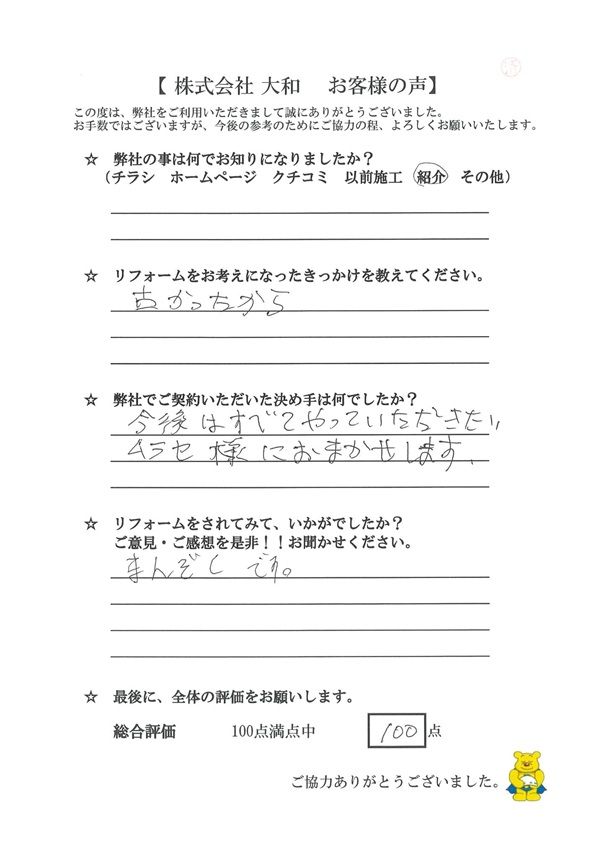 【 株式会社 大和 お客様の声】
この度は、弊社をご利用いただきまして誠にありがとうございました。
お手数ではございますが、今後の参考のためにご協力の程、よろしくお願いいたします。
☆ 弊社の事は何でお知りになりましたか？
（チラシ ホームページ クチコミ 以前施工 紹介 その他）
☆ リフォームをお考えになったきっかけを教えてください。
古かったから
☆ 弊社でご契約いただいた決め手は何でしたか？
今後はすべてやっていただきたい
ムラセ様におまかせします。
☆ リフォームをされてみて、いかがでしたか？
ご意見・ご感想を是非！！お聞かせください。
まんぞくです。
☆ 最後に、全体の評価をお願いします。
総合評価 100点満点中 100 点
ご協力ありがとうございました。